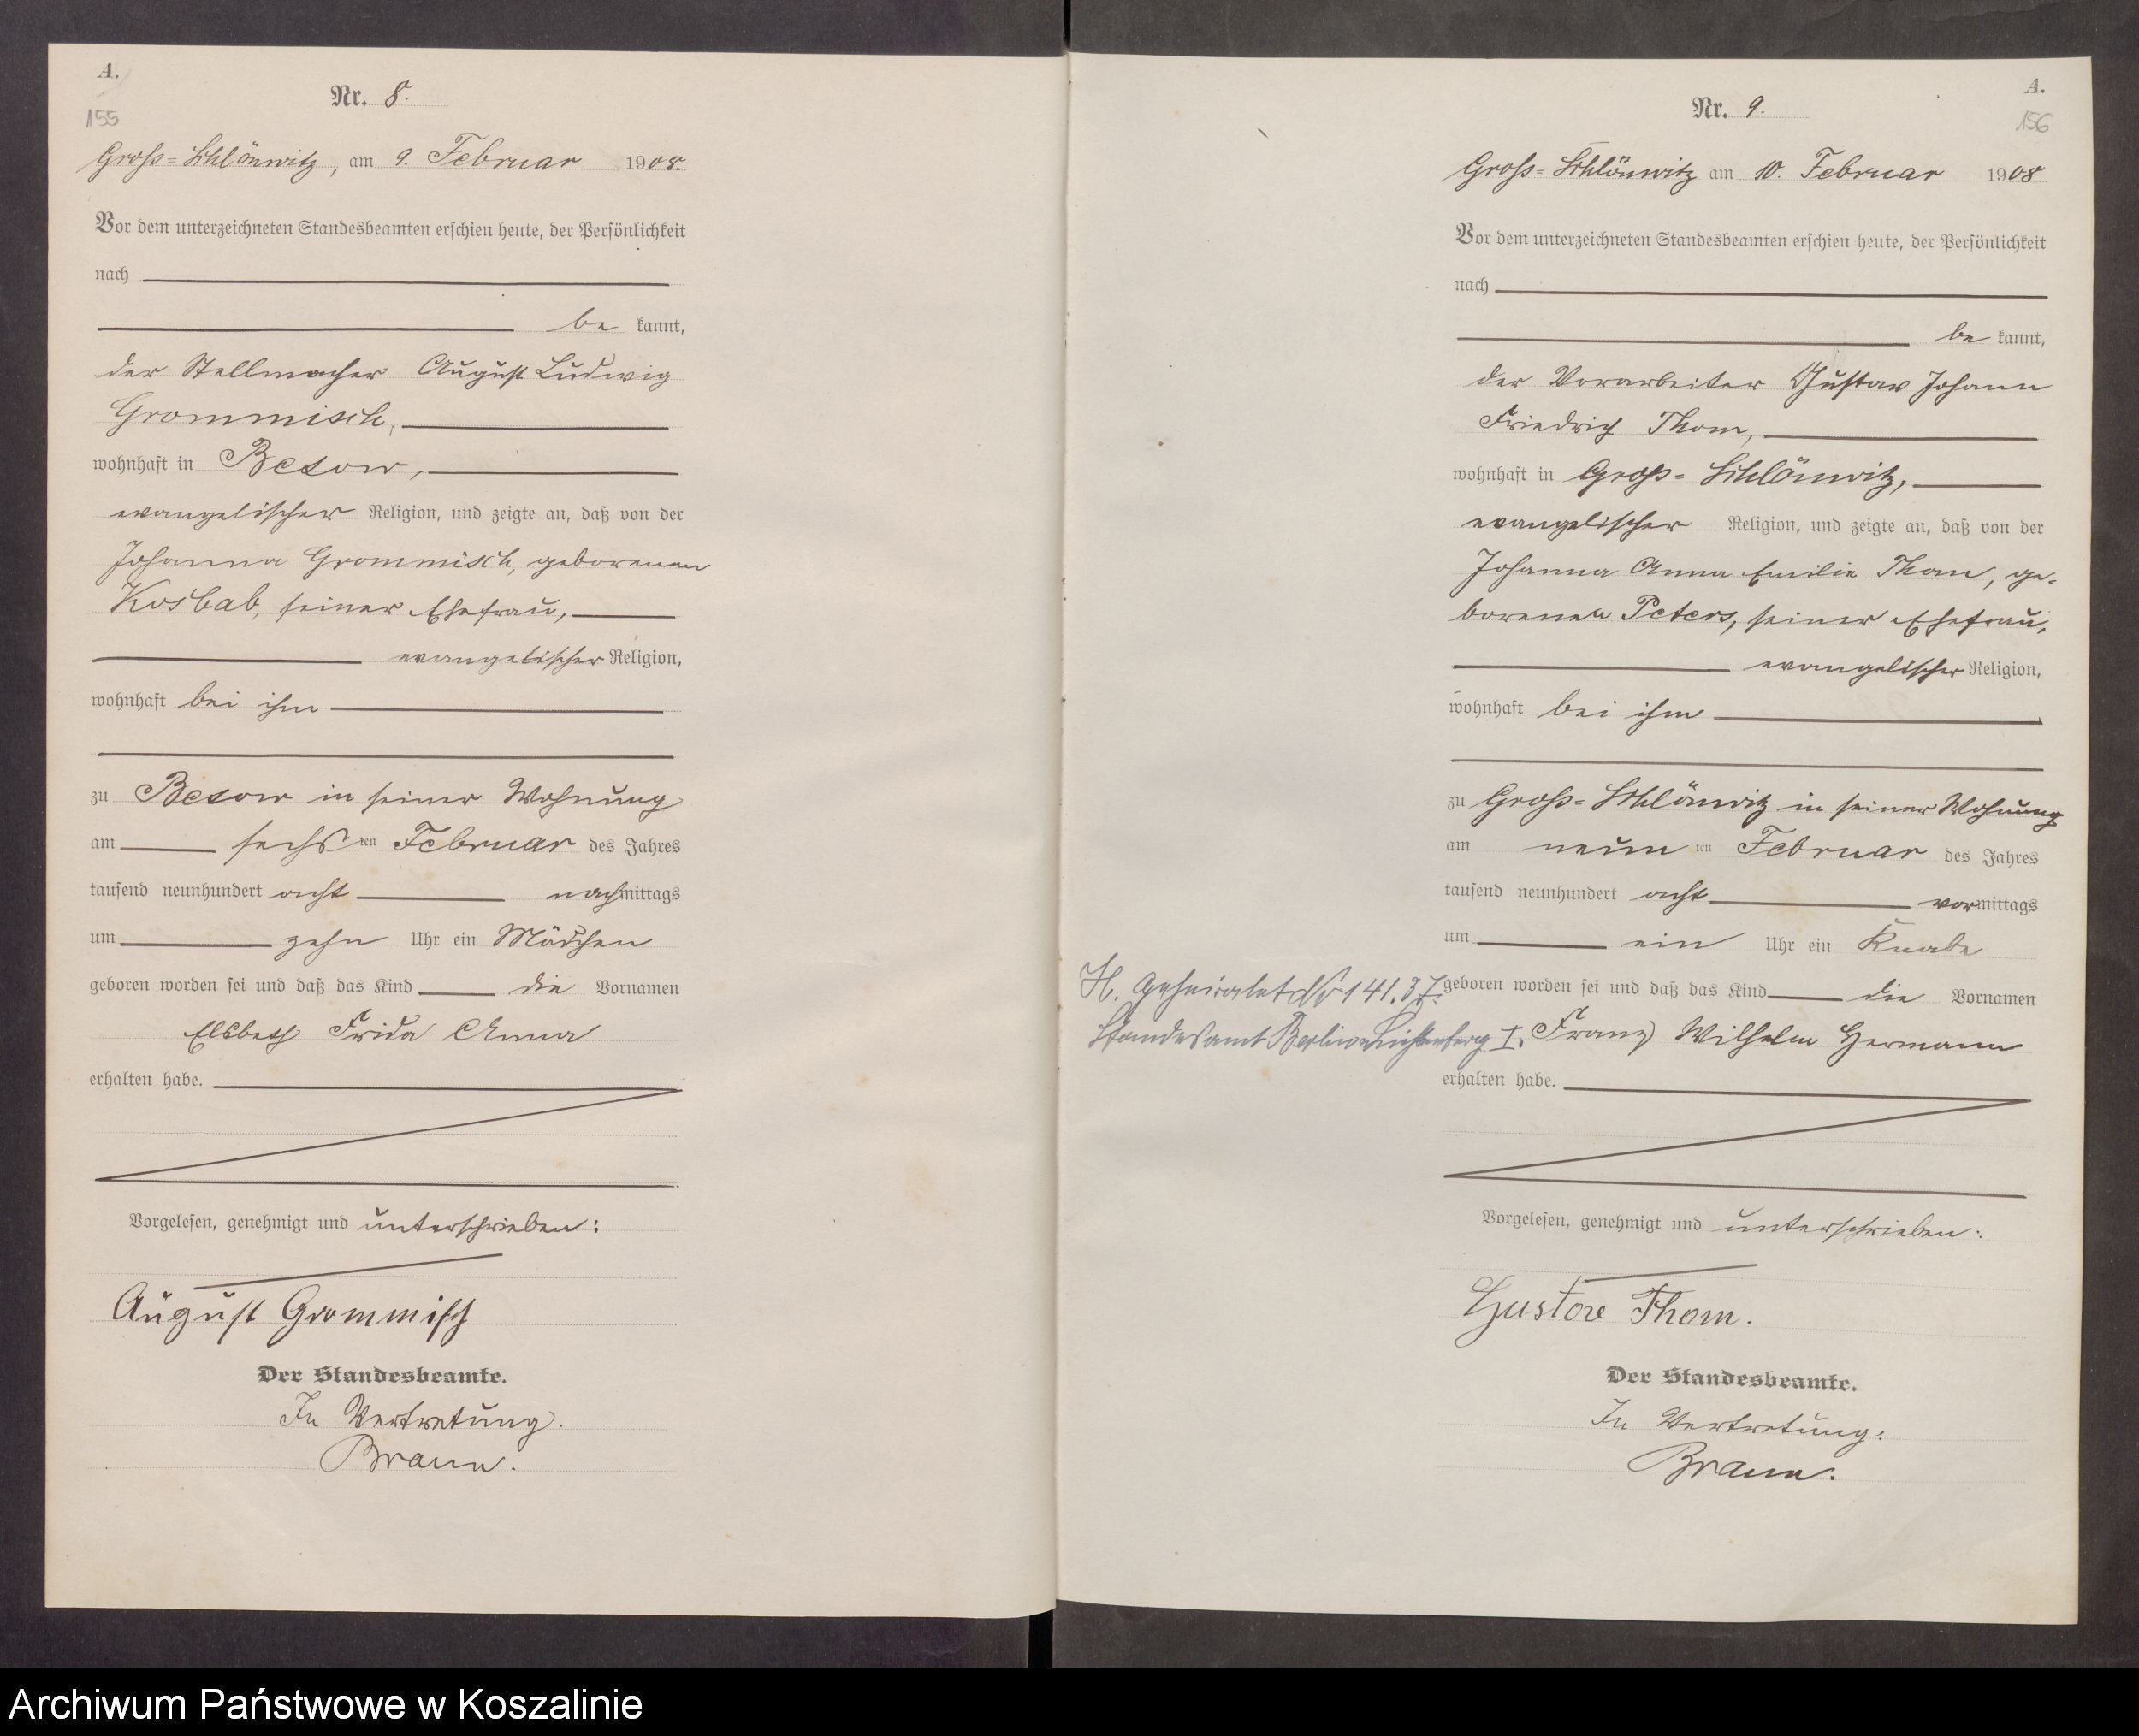 A.
155
Nr. 8.
Gross=Schlönwitz, am 9. Februar 1908.
Vor dem unterzeichneten Standesbeamten erschien heute, der Persönlichkeit
nach
be kannt,
der Stellmacher August Ludwig
Grommisch,
wohnhaft in Besow,
evangelischer Religion, und zeigte an, daß von der
Johanna Grommisch, geborenen
Kosbab, seiner Ehefrau,
evangelischer Religion,
wohnhaft bei ihm
zu Besow in seiner Wohnung
am sechsten Februar des Jahres
tausend neunhundert acht nachmittags
um zehn Uhr ein Mädchen
geboren worden sei und daß das Kind die Vornamen
Elsbeth Frida Anna
erhalten habe.
Vorgelesen, genehmigt und unterschrieben:
August Grommisch
Der Standesbeamte.
In Vertretung.
Braun.
A.
156
Nr. 9.
Gross=Schlönwitz am 10. Februar 1908
Vor dem unterzeichneten Standesbeamten erschien heute, der Persönlichkeit
nach
be kannt,
der Vorarbeiter Gustav Johann
Friedrich Thom,
wohnhaft in Gross=Schlönwitz,
evangelischer Religion, und zeigte an, daß von der
Johanna Anna Emilie Thom, ge-
borenen Peters, seiner Ehefrau,
evangelischer Religion,
wohnhaft bei ihm
zu Gross=Schlönwitz in seiner Wohnung
am neunten Februar des Jahres
tausend neunhundert acht vormittags
um ein Uhr ein Knabe
geboren worden sei und daß das Kind die Vornamen
Franz Wilhelm Hermann
erhalten habe.
H. geheiratet Nr 141.37.
Standesamt Berlin Lichtenberg I.
Vorgelesen, genehmigt und unterschrieben:
Gustav Thom.
Der Standesbeamte.
In Vertretung:
Braun.
Archiwum Państwowe w Koszalinie